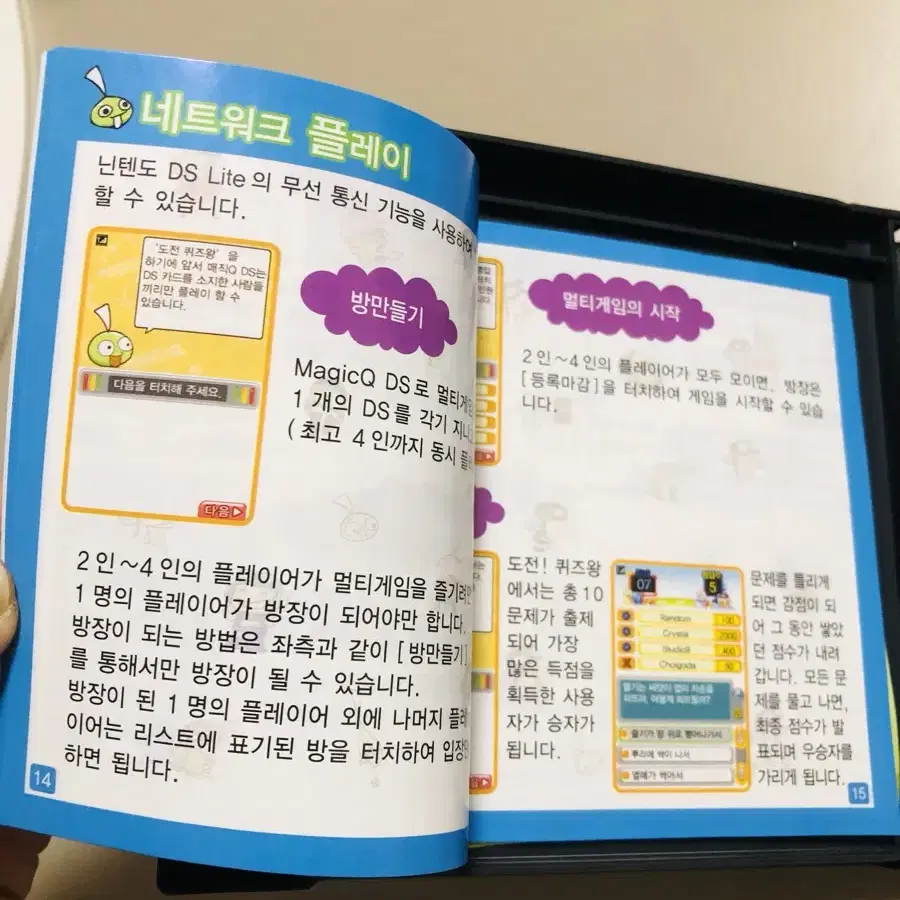 네트워크 플레이
닌텐도 DS Lite의 무선 통신 기능을 사용하여
할 수 있습니다.
'도전 퀴즈왕'을
하기에 앞서 매직Q DS는
DS 카드를 소지한 사람들
끼리만 플레이 할 수
있습니다.
다음을 터치해 주세요.
다음
방만들기
MagicQ DS로 멀티게임
1개의 DS를 각기
(최고 4인까지 동시
2인~4인의 플레이어가 멀티게임을
1명의 플레이어가 방장이 되어야만 합니다.
방장이 되는 방법은 좌측과 같이 [방만들기]
를 통해서만 방장이 될 수 있습니다.
방장이 된 1명의 플레이어 외에 나머지 플레
이어는 리스트에 표기된 방을 터치하여
하면 됩니다.
14
멀티게임의 시작
2인~4인의 플레이어가 모두 모이면, 방장은
[등록마감]을 터치하여 게임을 시작할 수 있습
니다.
도전! 퀴즈왕
에서는 총 10
문제가 출제
되어 가장
많은 득점을
획득한 사용
자가 승자가
됩니다.
07
5
Random 100
Crystal
Studio9 400
Choigoda 50
줄기가 땅 위로 뻗어나가서
뿌리에 싹이 나서
열매가 썩어서
문제를 틀리게
되면 감점이 되
어 그 동안 쌓았
던 점수가 내려
갑니다. 모든 문
제를 풀고 나면,
최종 점수가 발
표되며 우승자를
가리게 됩니다.
15